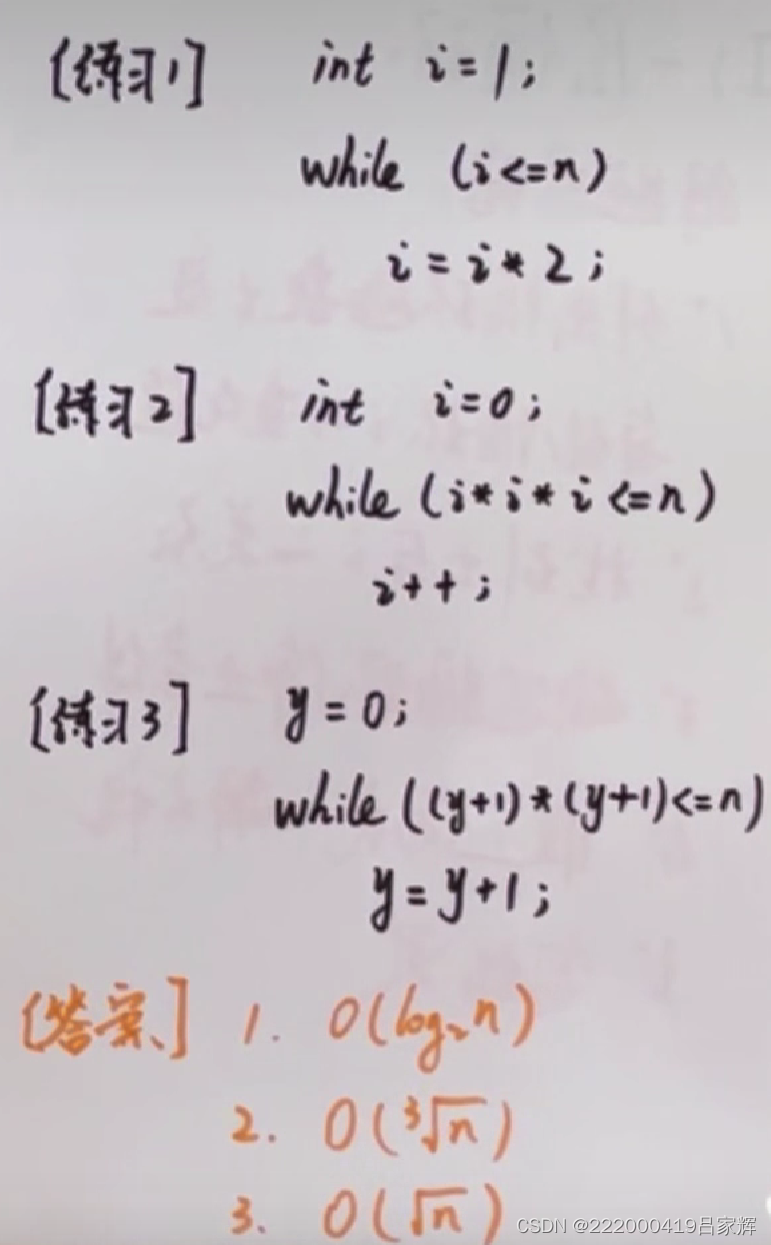 [练习1] int i=1;
while (i<=n)
i=i*2;
[练习2] int i=0;
while (i*i*i<=n)
i++;
[练习3] y=0;
while((y+1)*(y+1)<=n)
y=y+1;
[答案] 1. O(log₂n)
2. O(³√n)
3. O(√n)
CSDN @222000419吕家辉